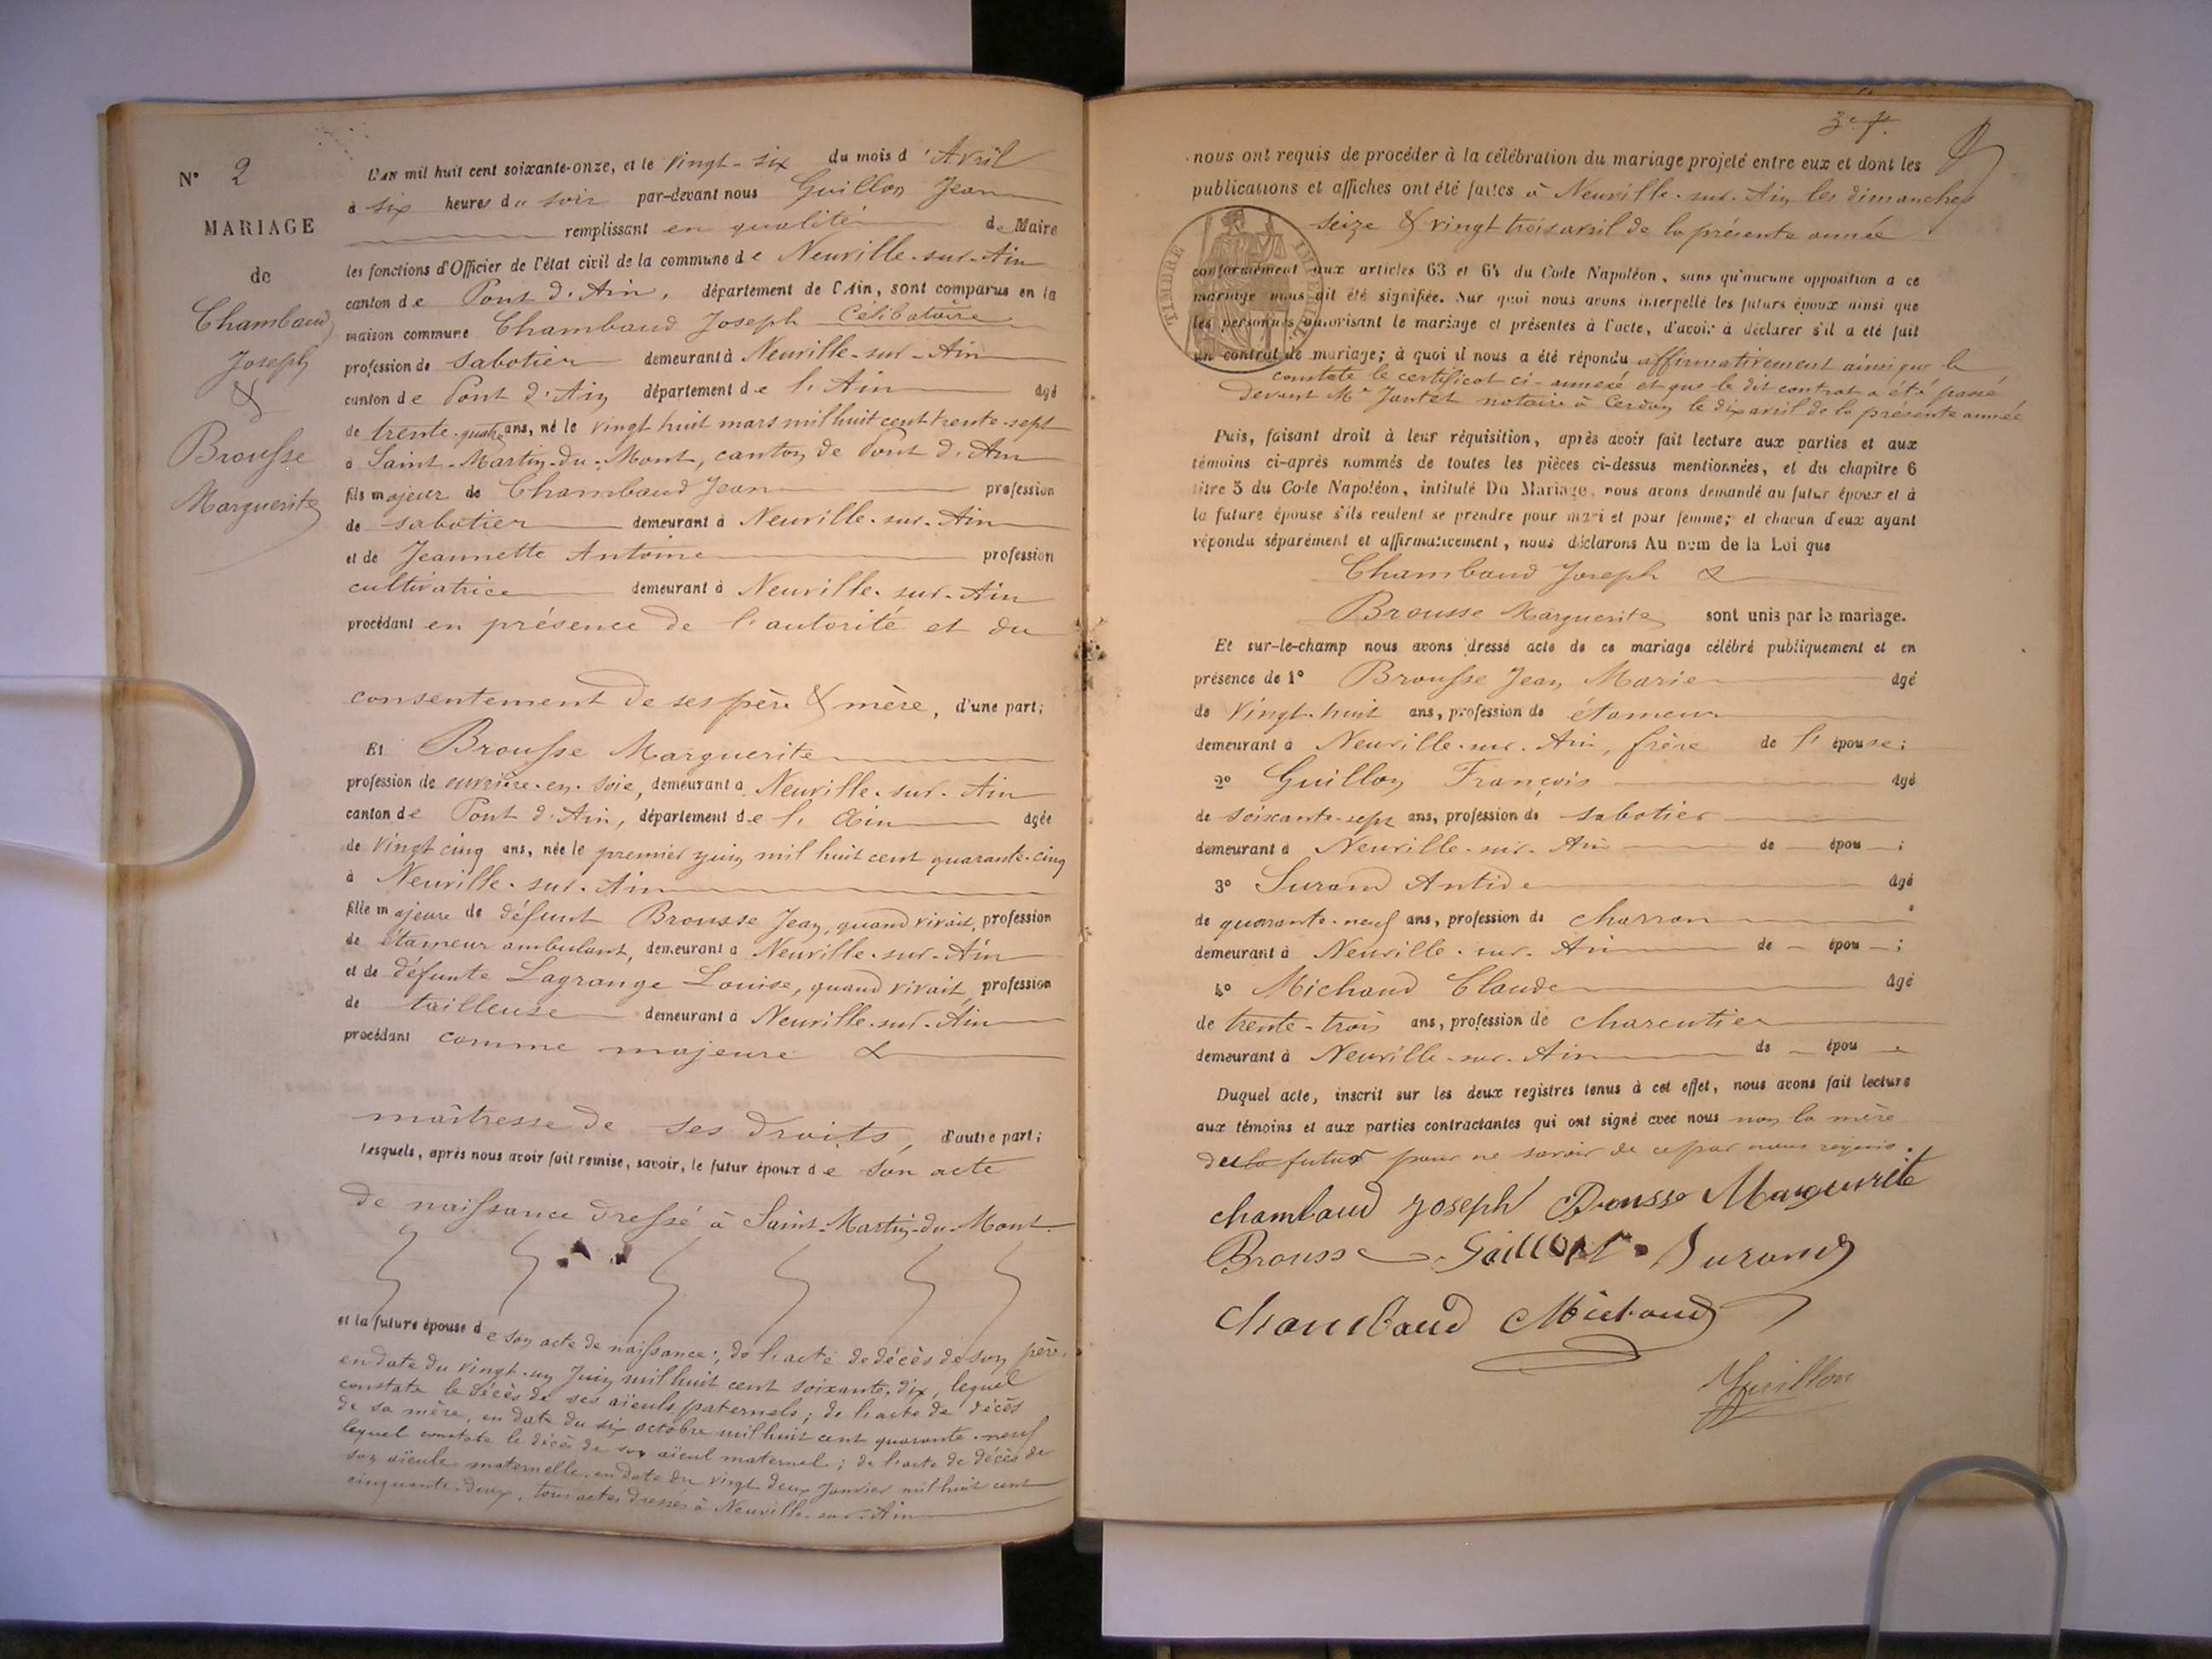 N° 2
MARIAGE
de
Chambaud
Joseph
&
Brousse
Marguerite
L'AN mil huit cent soixante-onze, et le vingt-six du mois d'Avril
à six heures du soir par-devant nous Guillon Jean
remplissant en qualité de Maire
les fonctions d'Officier de l'état civil de la commune de Neuville-sur-Ain
canton de Pont d'Ain, département de l'Ain, sont comparus en la
maison commune Chambaud Joseph Célibataire
profession de sabotier demeurant à Neuville-sur-Ain
canton de Pont d'Ain département de l'Ain âgé
de trente-quatre ans, né le vingt huit mars mil huit cent trente-sept
à Saint-Martin-du-Mont, canton de Pont d'Ain
fils majeur de Chambaud Jean profession
de sabotier demeurant à Neuville-sur-Ain
et de Jeannette Antoine profession
cultivatrice demeurant à Neuville-sur-Ain
procédant en présence de l'autorité et du
consentement de ses père & mère, d'une part;
Et Brousse Marguerite
profession de ouvrière-en-soie, demeurant à Neuville-sur-Ain
canton de Pont d'Ain, département de l'Ain âgée
de vingt cinq ans, née le premier juin mil huit cent quarante-cinq
à Neuville-sur-Ain
fille majeure de défunt Brousse Jean, quand vivait, profession
de étameur ambulant, demeurant à Neuville-sur-Ain
et de défunte Lagrange Louise, quand vivait, profession
de tailleuse demeurant à Neuville-sur-Ain
procédant comme majeure &
maîtresse de ses droits, d'autre part;
lesquels, après nous avoir fait remise, savoir, le futur époux de son acte
de naissance dressé à Saint-Martin-du-Mont
et la future épouse de son acte de naissance; de l'acte de décès de son père,
en date du vingt-un Juin mil huit cent soixante-dix, lequel
constate le décès de ses aïeuls paternels; de l'acte de décès
de sa mère, en date du six octobre mil huit cent quarante-neuf
lequel constate le décès de son aïeul maternel; de l'acte de décès de
son aïeule maternelle en date du vingt deux Janvier mil huit cent
cinquante-deux, tous actes dressés à Neuville-sur-Ain
nous ont requis de procéder à la célébration du mariage projeté entre eux et dont les
publications et affiches ont été faites à Neuville-sur-Ain les dimanches
seize & vingt trois avril de la présente année
TIMBRE IMPÉRIAL
conformément aux articles 63 et 64 du Code Napoléon, sans qu'aucune opposition à ce
mariage nous ait été signifiée. Sur quoi nous avons interpellé les futurs époux ainsi que
les personnes autorisant le mariage et présentes à l'acte, d'avoir à déclarer s'il a été fait
un contrat de mariage; à quoi il nous a été répondu affirmativement ainsi que le
constate le certificat ci-annexé et que le dit contrat a été passé
devant Me Jantet notaire à Cerdon le dix avril de la présente année
Puis, faisant droit à leur réquisition, après avoir fait lecture aux parties et aux
témoins ci-après nommés de toutes les pièces ci-dessus mentionnées, et du chapitre 6
titre 5 du Code Napoléon, intitulé Du Mariage, nous avons demandé au futur époux et à
la future épouse s'ils veulent se prendre pour mari et pour femme; et chacun d'eux ayant
répondu séparément et affirmativement, nous déclarons Au nom de la Loi que
Chambaud Joseph &
Brousse Marguerite sont unis par le mariage.
Et sur-le-champ nous avons dressé acte de ce mariage célébré publiquement et en
présence de 1° Brousse Jean Marie âgé
de vingt-huit ans, profession de étameur
demeurant à Neuville-sur-Ain, frère de l'épouse;
2° Guillon François âgé
de soixante-sept ans, profession de sabotier
demeurant à Neuville-sur-Ain de épou ;
3° Durand Antide âgé
de quarante-neuf ans, profession de charron
demeurant à Neuville-sur-Ain de épou ;
4° Michaud Claude âgé
de trente-trois ans, profession de charcutier
demeurant à Neuville-sur-Ain de épou
Duquel acte, inscrit sur les deux registres tenus à cet effet, nous avons fait lecture
aux témoins et aux parties contractantes qui ont signé avec nous non la mère
du futur pour ne savoir de ce par nous requis.
chambaud joseph Brousse Marguerite
Brousse Guillon Durand
Chambaud Michaud
Guillon